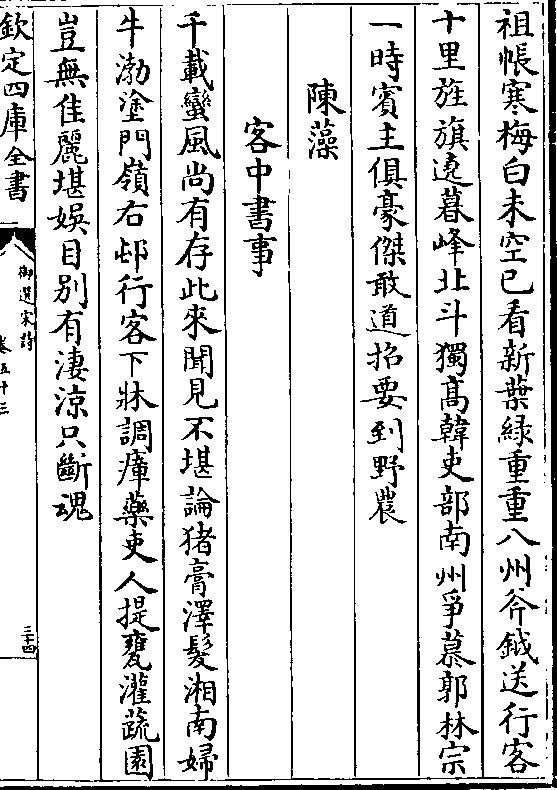 祖帳寒梅白未空已看新葉緑重重八州斧鉞送行客
十里旌旗遶暮峰北斗獨髙韓吏部南州爭慕郭林宗
一時賓主俱豪傑敢道招要到野農
陳藻
客中書事
千載蠻風尚有存此來聞見不堪論猪膏澤髮湘南婦
牛渤塗門嶺右邨行客下牀調瘴藥吏人提甕灌蔬園
豈無佳麗堪娛目别有淒涼只斷魂
欽定四庫全書
御選宋詩
卷五十三
三十四